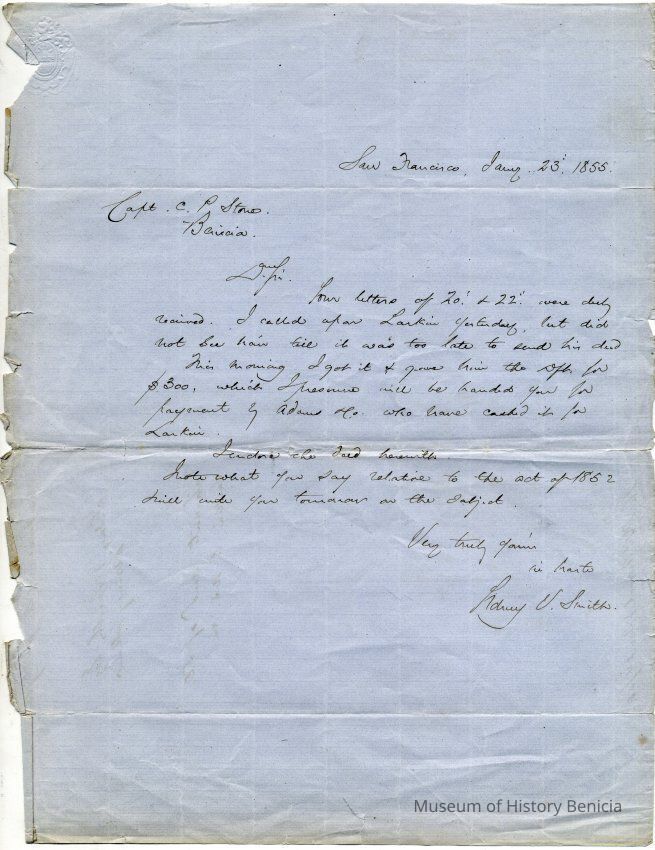 San Francisco, Jany. 23d. 1855.
Capt. C. P. Stone.
Benicia.
Dear Sir.
Your letters of 20th. & 22d. were duly
received. I called upon Larkin yesterday, but did
not see him till it was too late to send his deed
This morning I got it & gave him the dft. for
$300, which I presume will be handed you for
payment by Adams & Co. who have cashed it for
Larkin.
I enclose the deed herewith.
I note what you say relative to the act of 1852
Will write you tomorrow on the subject.
Very truly yours
in haste
Sidney V. Smith.
Museum of History Benicia